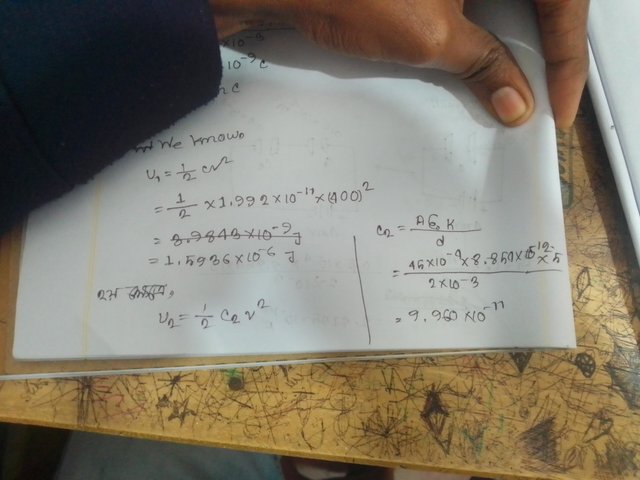 ×10⁻³
10⁻⁹ c
c
We know,
U₁ = 1/2 cv²
= 1/2 × 1.992 × 10⁻¹¹ × (400)²
= 3.9843 × 10⁻⁹ J
= 1.5936 × 10⁻⁶ J
U₂ = 1/2 C₂ v²
C₂ = Aε₀K / d
= 45×10⁻⁴ × 8.854 × 10⁻¹² × 5 / 2×10⁻³
= 9.960 × 10⁻¹¹